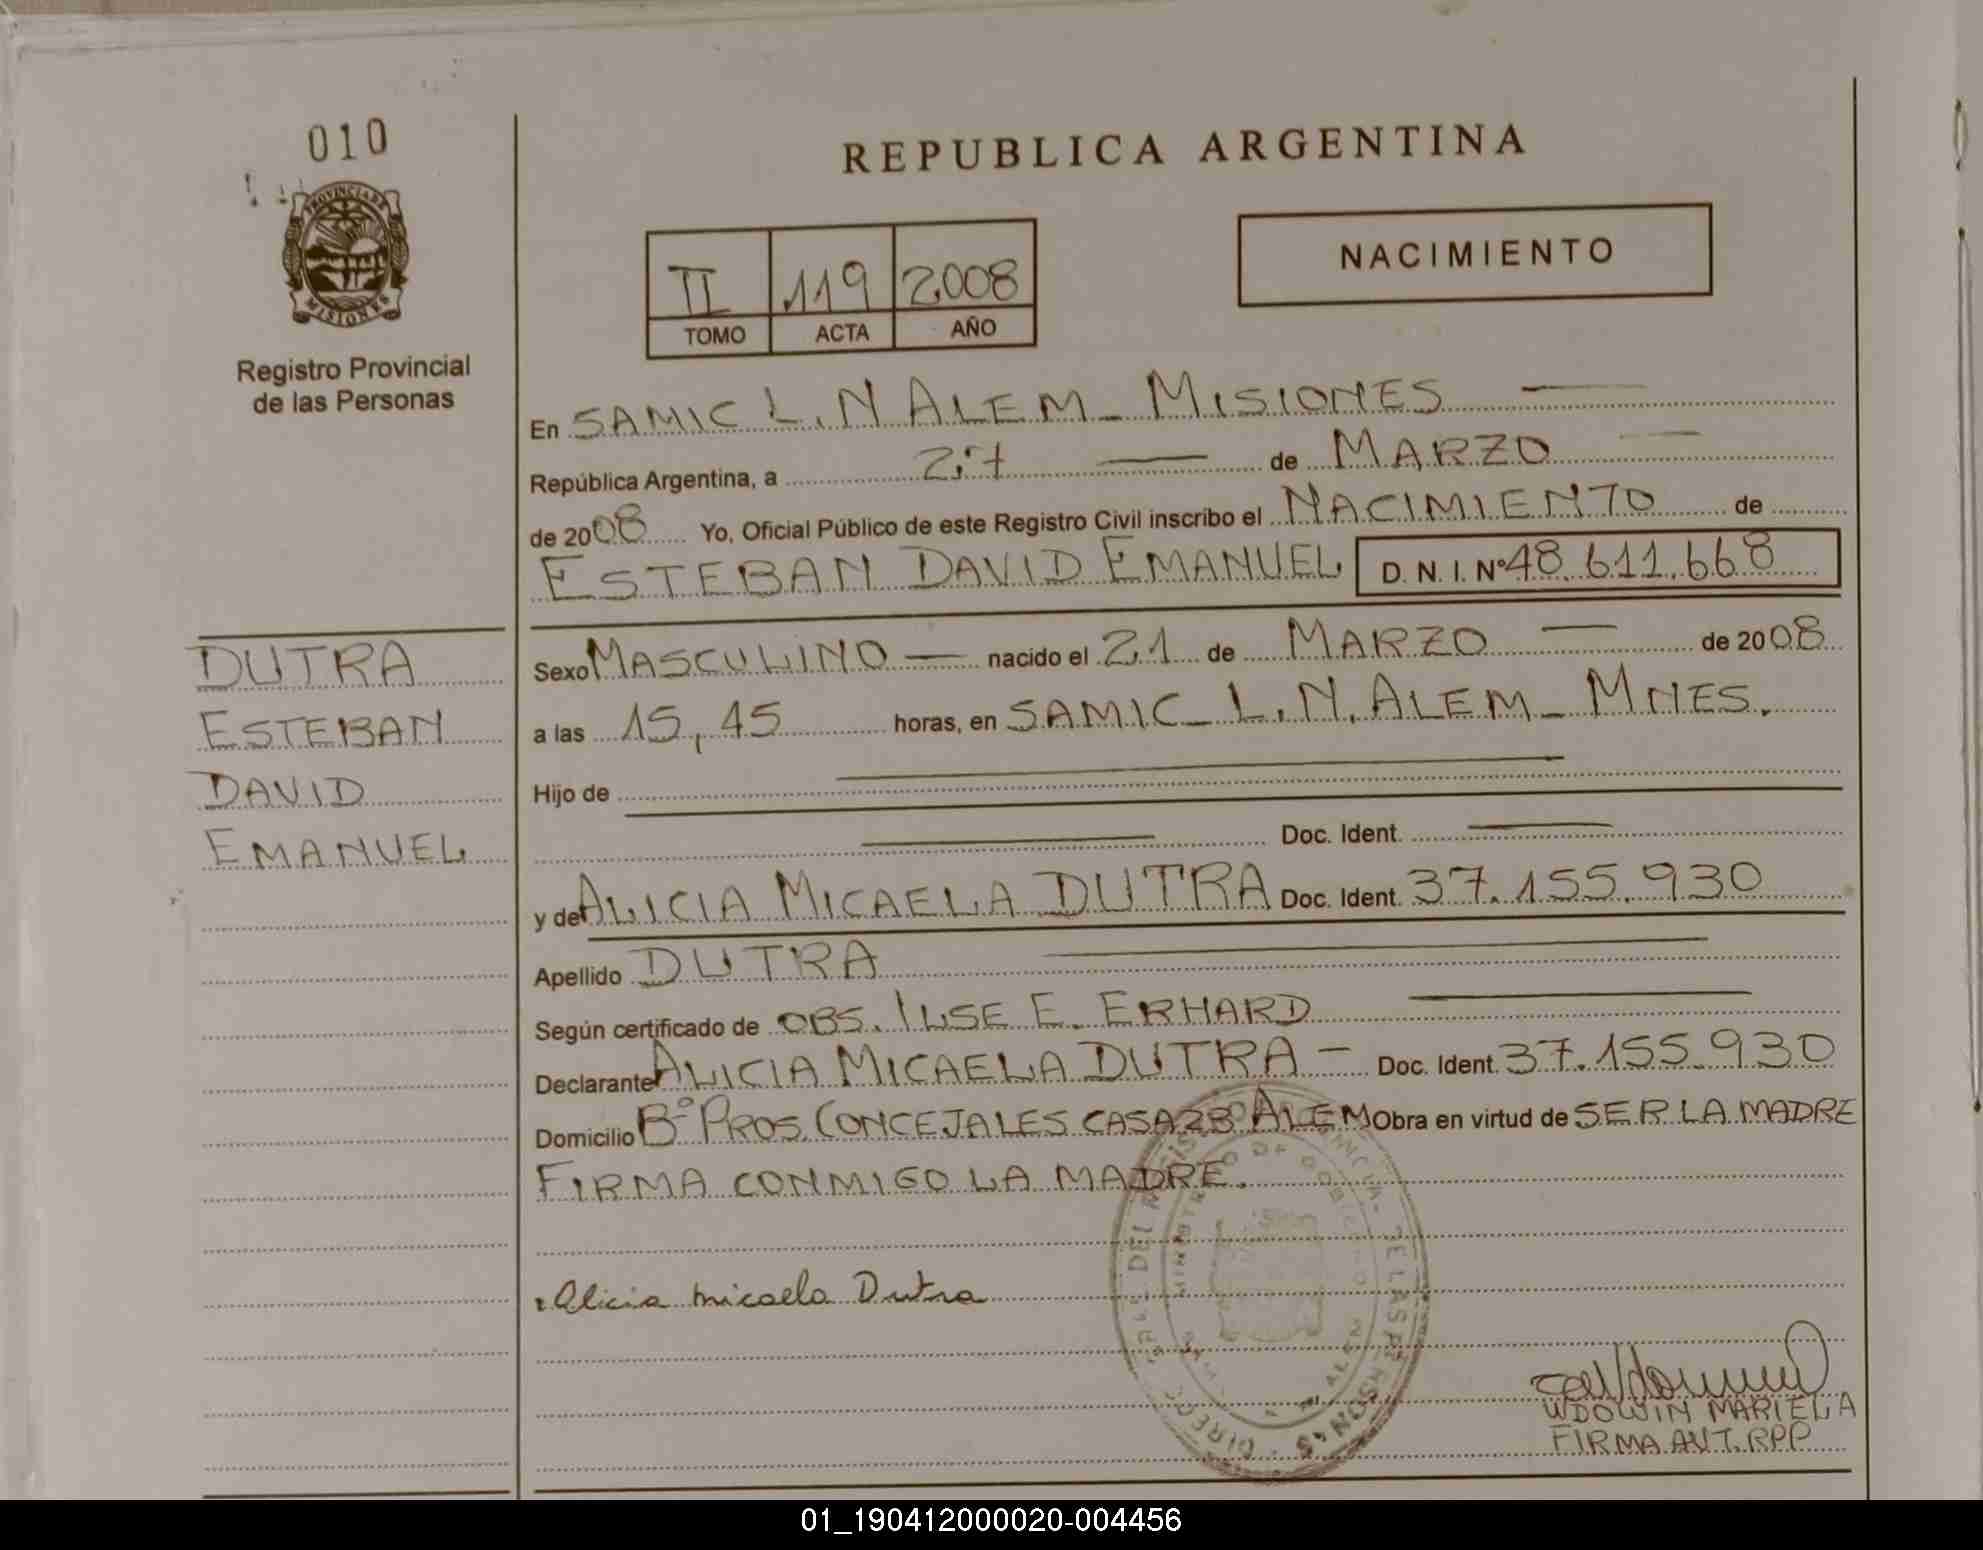 010
PROVINCIA DE
MISIONES
Registro Provincial
de las Personas
REPUBLICA ARGENTINA
II 119 2008
TOMO ACTA AÑO
NACIMIENTO
En SAMIC L.N ALEM - MISIONES
República Argentina, a 27 de MARZO
de 2008 Yo, Oficial Público de este Registro Civil inscribo el NACIMIENTO de
ESTEBAN DAVID EMANUEL D. N. I. Nº 48.611.668
DUTRA
ESTEBAN
DAVID
EMANUEL
Sexo MASCULINO nacido el 21 de MARZO de 2008
a las 15,45 horas, en SAMIC - L.N. ALEM - MNES.
Hijo de
Doc. Ident.
y de ALICIA MICAELA DUTRA Doc. Ident. 37.155.930
Apellido DUTRA
Según certificado de OBS. ILSE E. ERHARD
Declarante ALICIA MICAELA DUTRA - Doc. Ident. 37.155.930
Domicilio Bº PROS. CONCEJALES CASA 28 ALEM Obra en virtud de SER LA MADRE
FIRMA CONMIGO LA MADRE.
Alicia micaela Dutra
WDOWIN MARIELA
FIRMA AUT. RPP
01_190412000020-004456